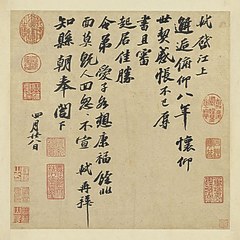 軾啟江上
邂逅俯仰八年懷仰
世契感悵不已辱
書且審
起居佳勝
令弟愛子各想康福餘非
面莫既人回匆匆不宣軾再拜
知縣朝奉閣下
四月廿八日